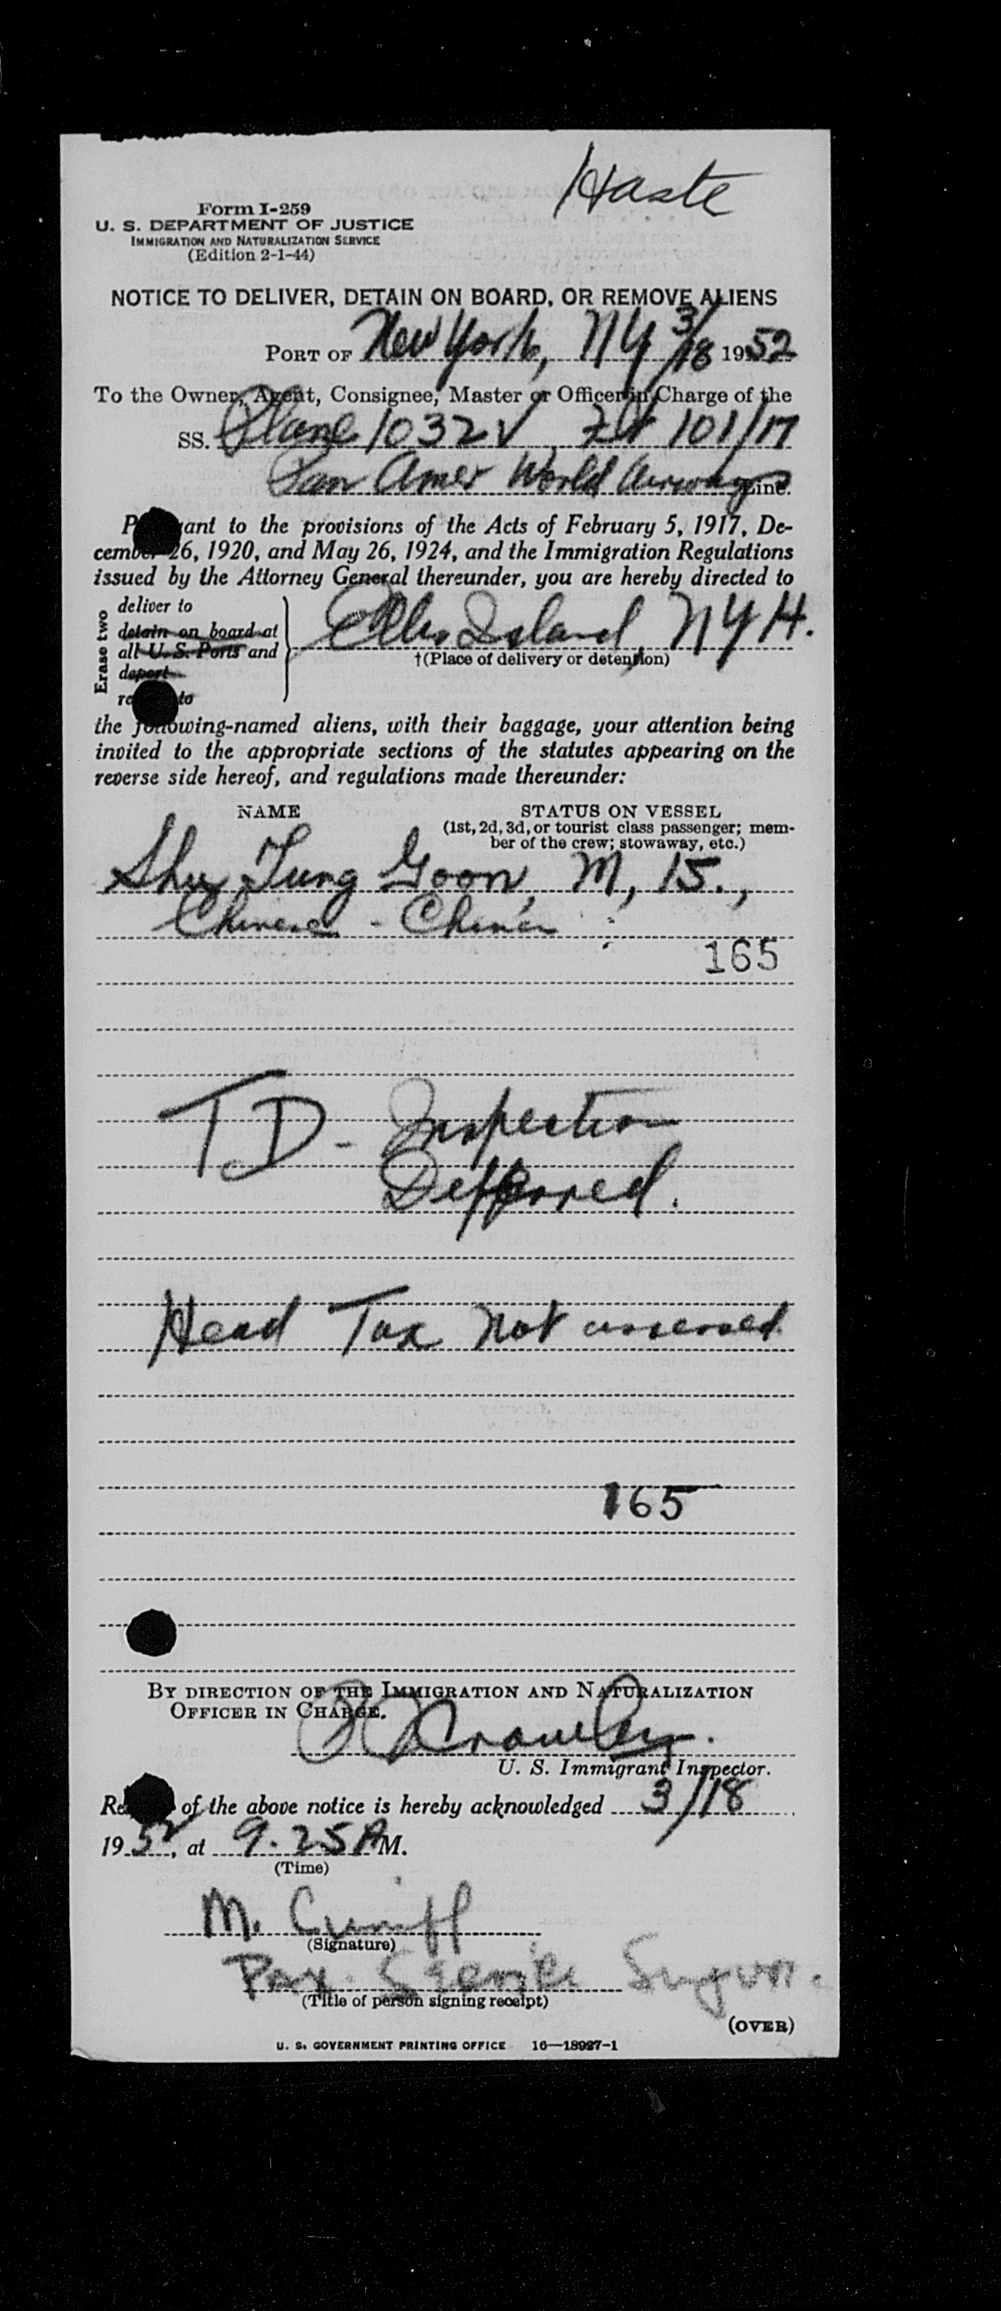 Haste
Form I-259
U. S. DEPARTMENT OF JUSTICE
IMMIGRATION AND NATURALIZATION SERVICE
(Edition 2-1-44)
NOTICE TO DELIVER, DETAIN ON BOARD, OR REMOVE ALIENS
PORT OF New York, NY 3/18 1952
To the Owner, Agent, Consignee, Master or Officer in Charge of the
SS. Plane 1032V Flt 101/17
Pan Amer World Airways Line.
Pursuant to the provisions of the Acts of February 5, 1917, De-
cember 26, 1920, and May 26, 1924, and the Immigration Regulations
issued by the Attorney General thereunder, you are hereby directed to
Erase two
deliver to
detain on board at
all U. S. Ports and
deport
to
Ellis Island, NYH.
†(Place of delivery or detention)
the following-named aliens, with their baggage, your attention being
invited to the appropriate sections of the statutes appearing on the
reverse side hereof, and regulations made thereunder:
NAME STATUS ON VESSEL
(1st, 2d, 3d, or tourist class passenger; mem-
ber of the crew; stowaway, etc.)
Tung Goon, M, 15.,
Chinese - China
165
TD - Inspection
Defferred.
Head Tax not assessed.
165
BY DIRECTION OF THE IMMIGRATION AND NATURALIZATION
OFFICER IN CHARGE.
Crowley.
U. S. Immigrant Inspector.
of the above notice is hereby acknowledged 3/18
1952, at 9.25 AM.
(Time)
M. Cunniff
(Signature)
Pax.
(Title of person signing receipt)
(OVER)
U. S. GOVERNMENT PRINTING OFFICE 16—18927-1